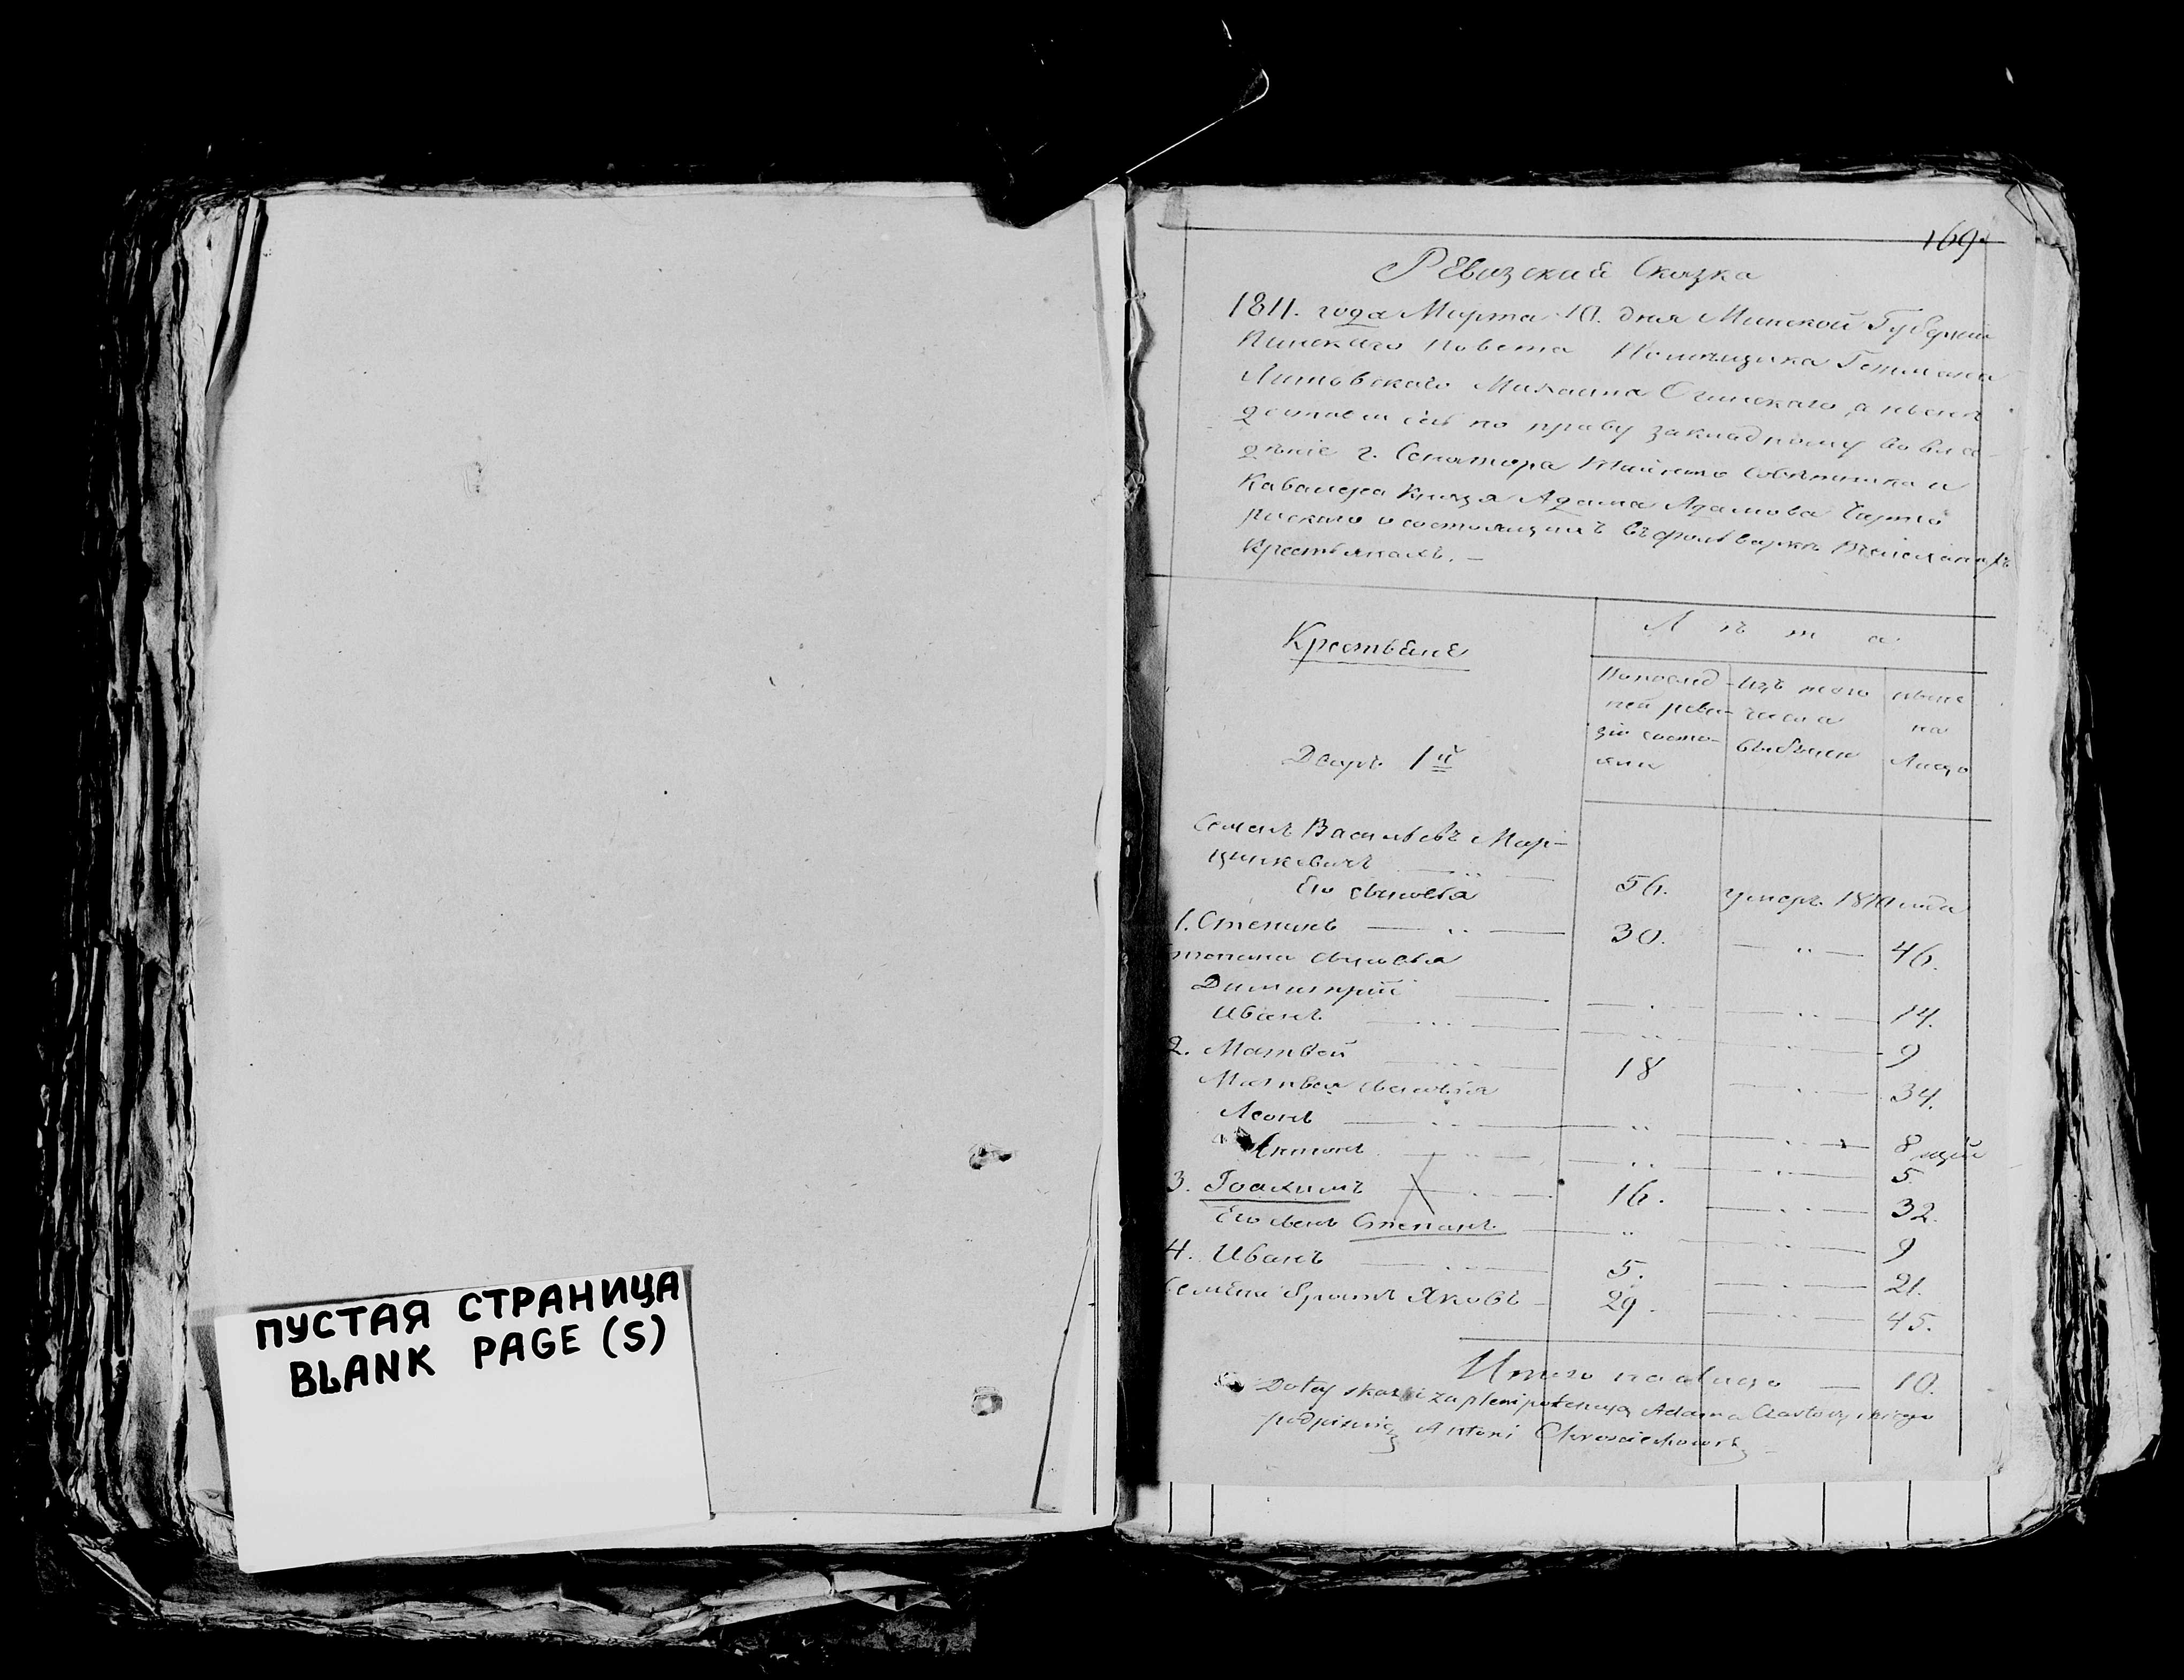 ПУСТАЯ СТРАНИЦА
BLANK PAGE (S)
169.
Ревизская Сказка
1811. года Марта 10. дня Минской Губернии
Пинскаго повета Помещика Гетмана
Литовскаго Михаила Огинскаго, а ныне
по праву закладному во вла-
дение г. Сенатора Тайнаго Советника и
Кавалера Князя Адама Адамова Чарто
рискаго о состоящихъ въ фольварке
Крестьянахъ. —
Крестьяне
Л ѣ т а
Попослед-
ней реви-
зiи состо-
яли
Изъ того
числа
выбыли
ныне
на
Лицо
Дворъ 1й
Семенъ Васильевъ Мар-
цинкевичъ 56. умеръ 1810 года
Его сыновья
1. Степанъ 30. 46.
Степана сыновья
Димитрiй 14.
Иванъ 9
2. Матвей 18 34.
Матвея сыновья
Леонъ 8
Антонъ 5
3. Iоахимъ 16. 32.
Его сынъ Степанъ 9
4. Иванъ 5. 21.
Семена братъ Яковъ 29. 45.
Итого налицо — 10.
Do tey skazki za plenipotencyą Adama Czartoryskiego
podpisuię Antoni